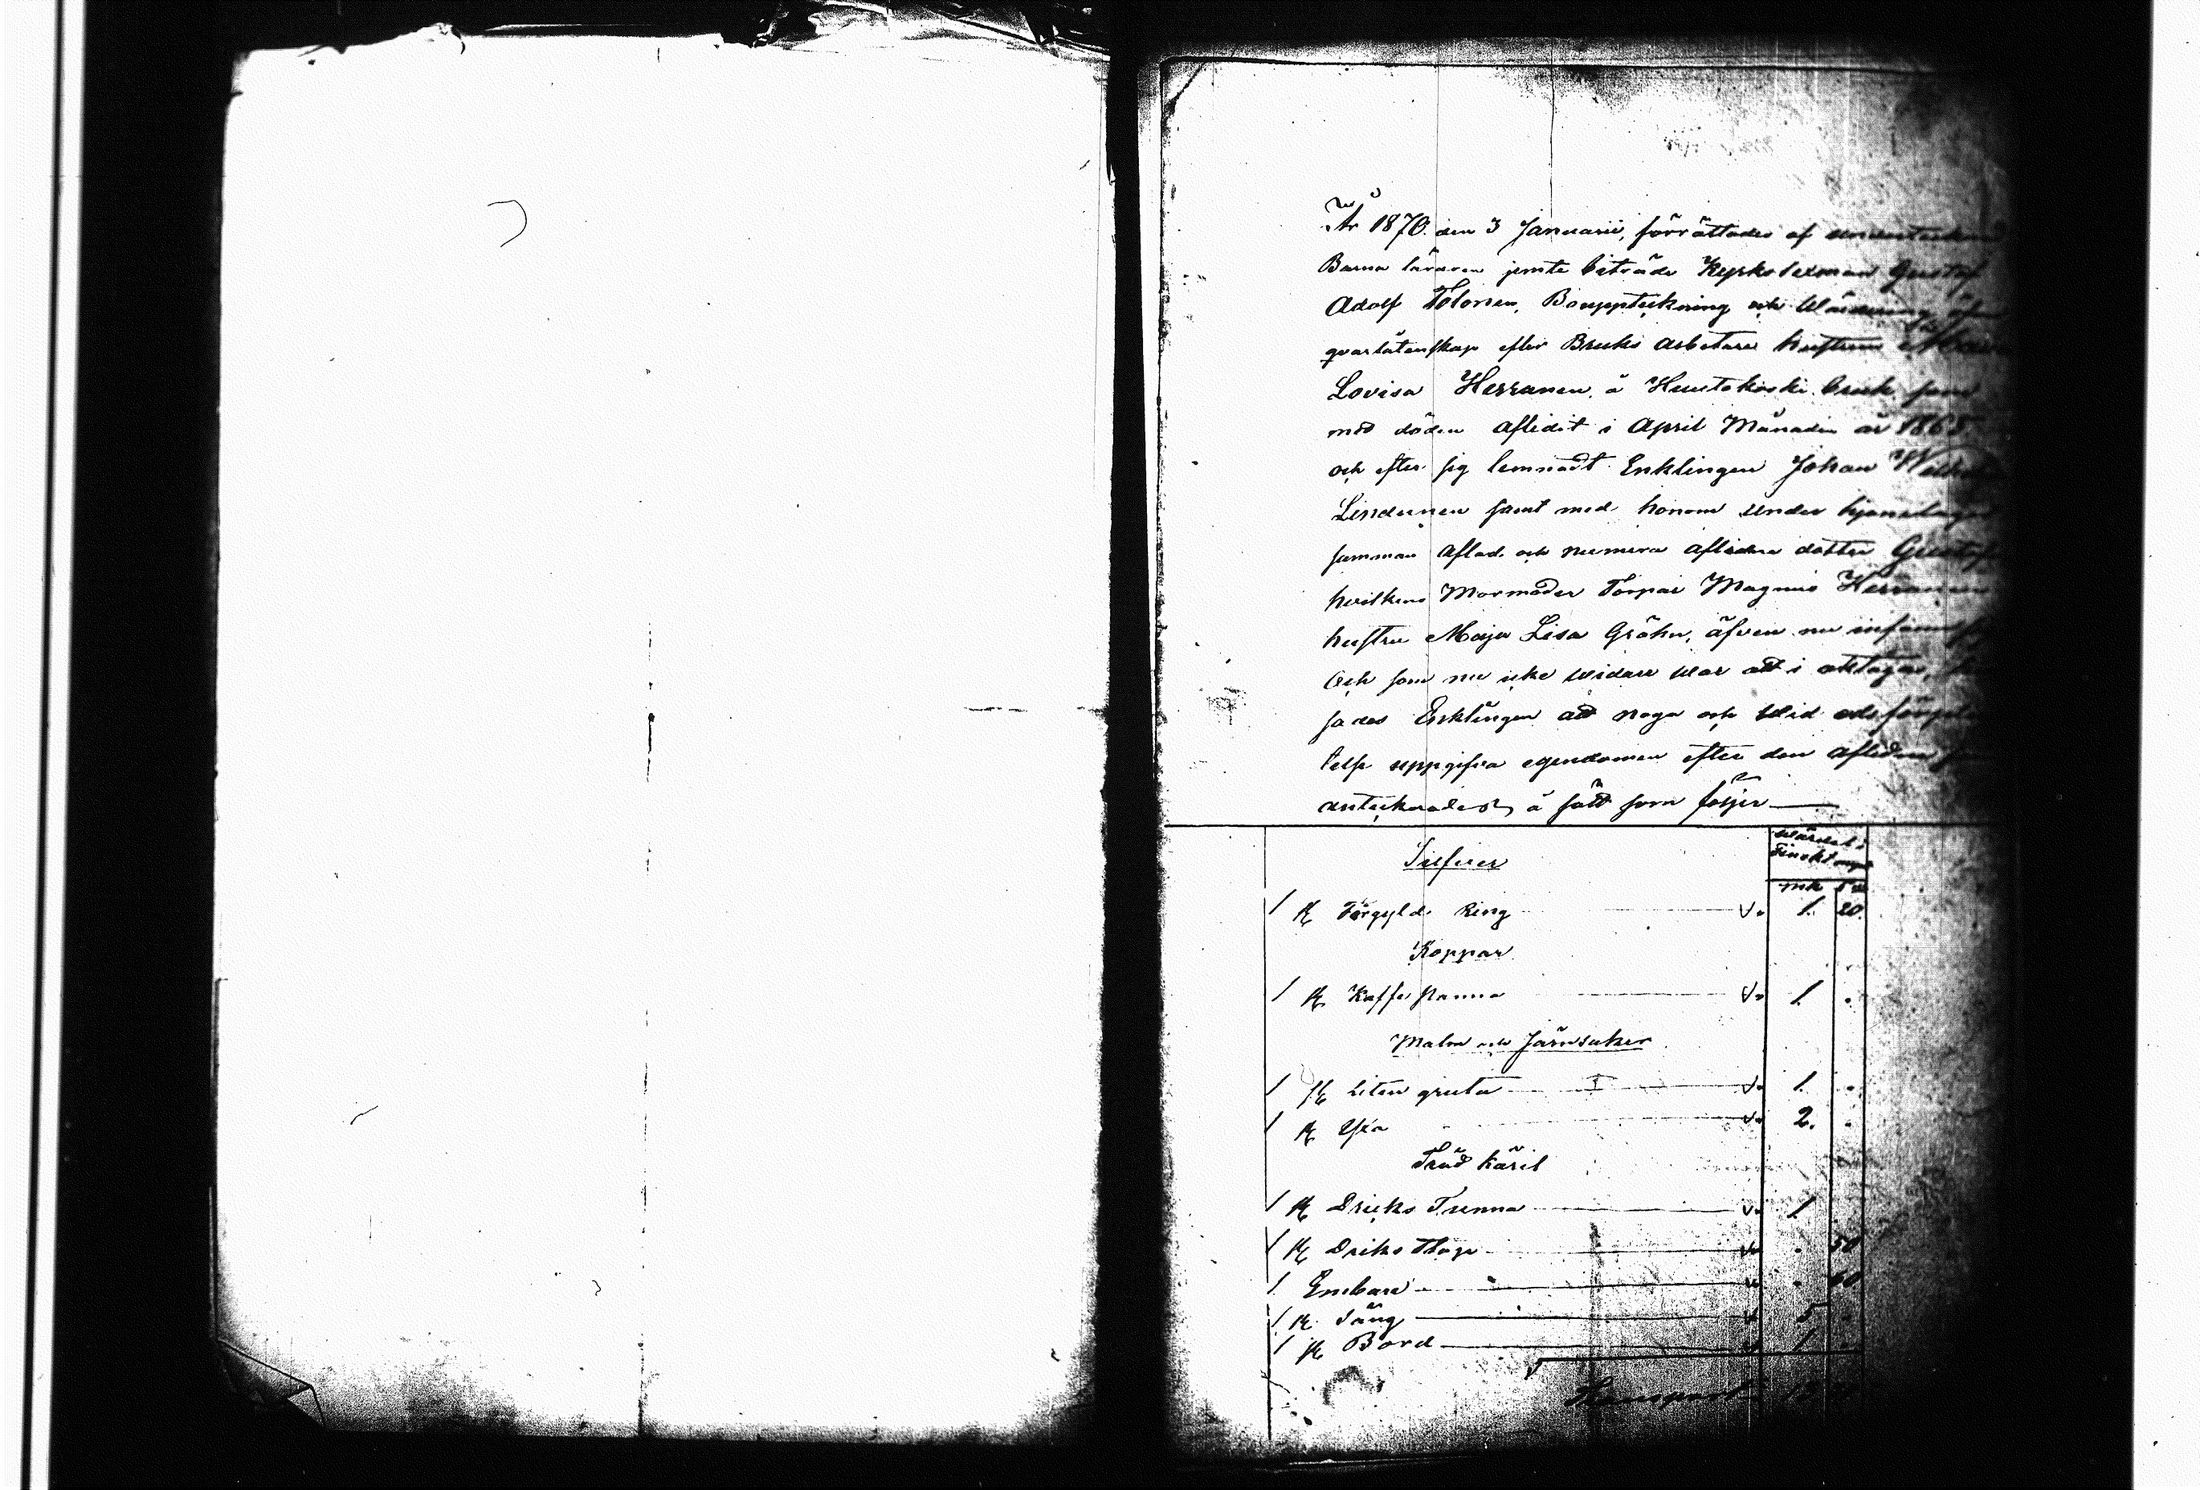 År 1870 den 3 Januarii, förrättades af
Barna läraren jemte biträde Kyrkolexman Gustaf
Adolf Tolonen, Bouppteckning och Wärdering
qvarlåtenskap efter Bruks Arbetare hustrun
Lovisa Herranen, å Huutokoski bruk som
med döden aflidit i April Månaden år 1865
och efter sig lemnadt Enklingen Johan
Lindunen samt med honom under
samman aflad och numera aflidna dotter
hvilkens Mormoder Torpar Magnus Herranen
hustru Maja Lisa Gröhn, äfven nu
Och som nu icke widare war att i akttaga,
sades Enklingen att noga och wid
telse uppgifva egendomen efter den aflidna
antecknades å sätt som följer
Wärdet i
Finskt mynt
Silfver
mk
1 st Förgyld Ring 1. 20.
Koppar
1 st Kaffe panna 1. .
Malm och Järnsaker
1 st liten gruta 1. .
1 st Yxa 2. .
Träd Käril
1 st Dricks Tunna 1.
1 st Driks . 50
1 Embare . 60
1 st Säng 5 .
1 st Bord 1 .
Transport